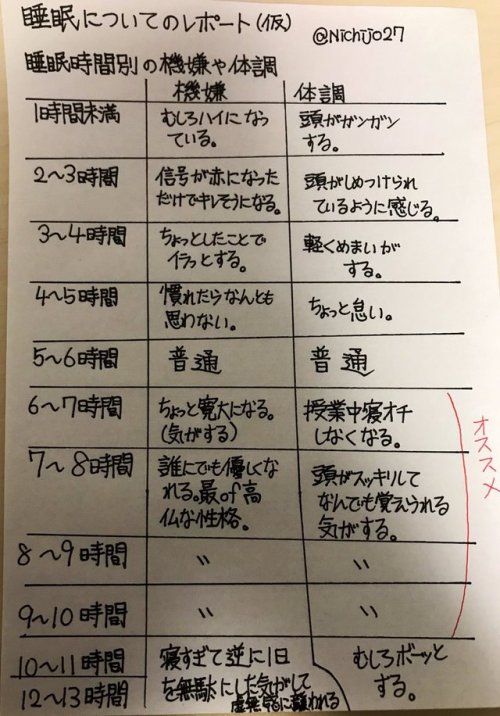 睡眠についてのレポート(仮)
@Nichijo27
睡眠時間別の機嫌や体調
機嫌 体調
1時間未満 むしろハイになっ 頭がガンガン
ている。 する。
2〜3時間 信号が赤になった 頭がしめつけられ
だけでキレそうになる。 ているように感じる。
3〜4時間 ちょっとしたことで 軽くめまいが
イラっとする。 する。
4〜5時間 慣れたらなんとも ちょっと怠い。
思わない。
5〜6時間 普通 普通
6〜7時間 ちょっと寛大になる。 授業中寝オチ
(気がする) しなくなる。
オススメ
7〜8時間 誰にでも優しくな 頭がスッキリして
れる。最of高 なんでも覚えられる
仏な性格。 気がする。
8〜9時間 〃 〃
9〜10時間 〃 〃
10〜11時間 寝すぎて逆に1日 むしろボーッと
12〜13時間 を無駄にした気がして する。
虚無感に襲われる